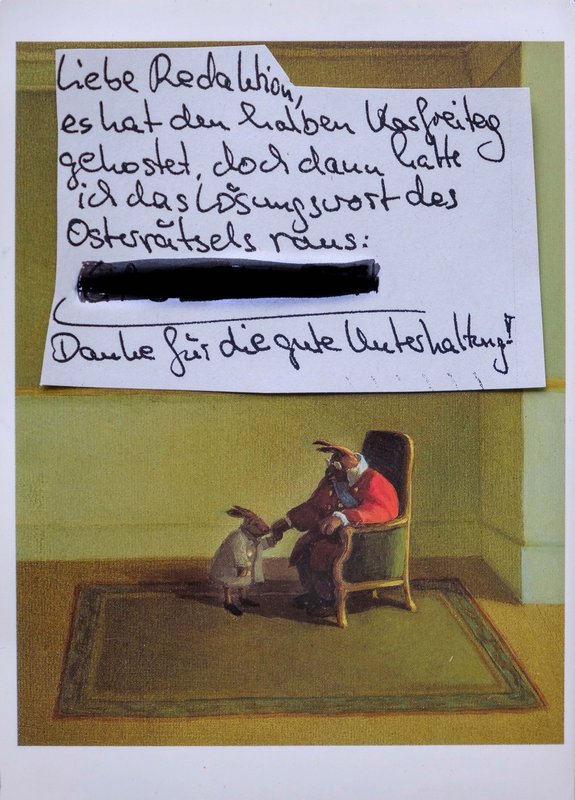 Liebe Redaktion,
es hat den halben Karfreitag
gekostet, doch dann hatte
ich das Lösungswort des
Osterrätsels raus:
Danke für die gute Unterhaltung!